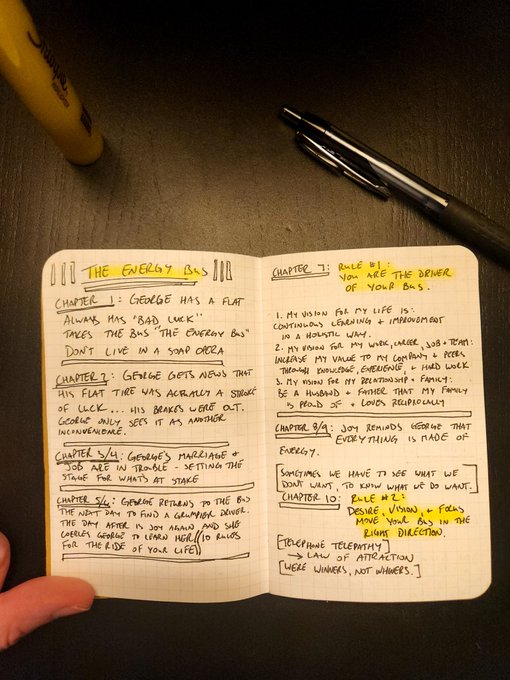 Sharpie
THE ENERGY BUS
CHAPTER 1: GEORGE HAS A FLAT
ALWAYS HAS "BAD LUCK"
TAKES THE BUS "THE ENERGY BUS"
DON'T LIVE IN A SOAP OPERA
CHAPTER 2: GEORGE GETS NEWS THAT
HIS FLAT TIRE WAS ACTUALLY A STROKE
OF LUCK... HIS BRAKES WERE OUT.
GEORGE ONLY SEES IT AS ANOTHER
INCONVENIENCE.
CHAPTER 3/4: GEORGE'S MARRIAGE &
JOB ARE IN TROUBLE - SETTING THE
STAGE FOR WHATS AT STAKE
CHAPTER 5/6: GEORGE RETURNS TO THE BUS
THE NEXT DAY TO FIND A GRUMPIER DRIVER.
THE DAY AFTER IS JOY AGAIN AND SHE
COERCES GEORGE TO LEARN HER ((10 RULES
FOR THE RIDE OF YOUR LIFE))
CHAPTER 7: RULE #1:
YOU ARE THE DRIVER
OF YOUR BUS.
1. MY VISION FOR MY LIFE IS:
CONTINUOUS LEARNING & IMPROVEMENT
IN A HOLISTIC WAY.
2. MY VISION FOR MY WORK, CAREER, JOB & TEAM:
INCREASE MY VALUE TO MY COMPANY & PEERS
THROUGH KNOWLEDGE, EXPERIENCE, & HARD WORK
3. MY VISION FOR MY RELATIONSHIP & FAMILY:
BE A HUSBAND & FATHER THAT MY FAMILY
IS PROUD OF & LOVES RECIPROCALLY
CHAPTER 8/9: JOY REMINDS GEORGE THAT
EVERYTHING IS MADE OF
ENERGY.
[SOMETIMES WE HAVE TO SEE WHAT WE
DON'T WANT, TO KNOW WHAT WE DO WANT.]
CHAPTER 10: RULE #2:
DESIRE, VISION, & FOCUS
MOVE YOUR BUS IN THE
RIGHT DIRECTION.
[TELEPHONE TELEPATHY]
→ LAW OF ATTRACTION
[WE'RE WINNERS, NOT WHINERS.]